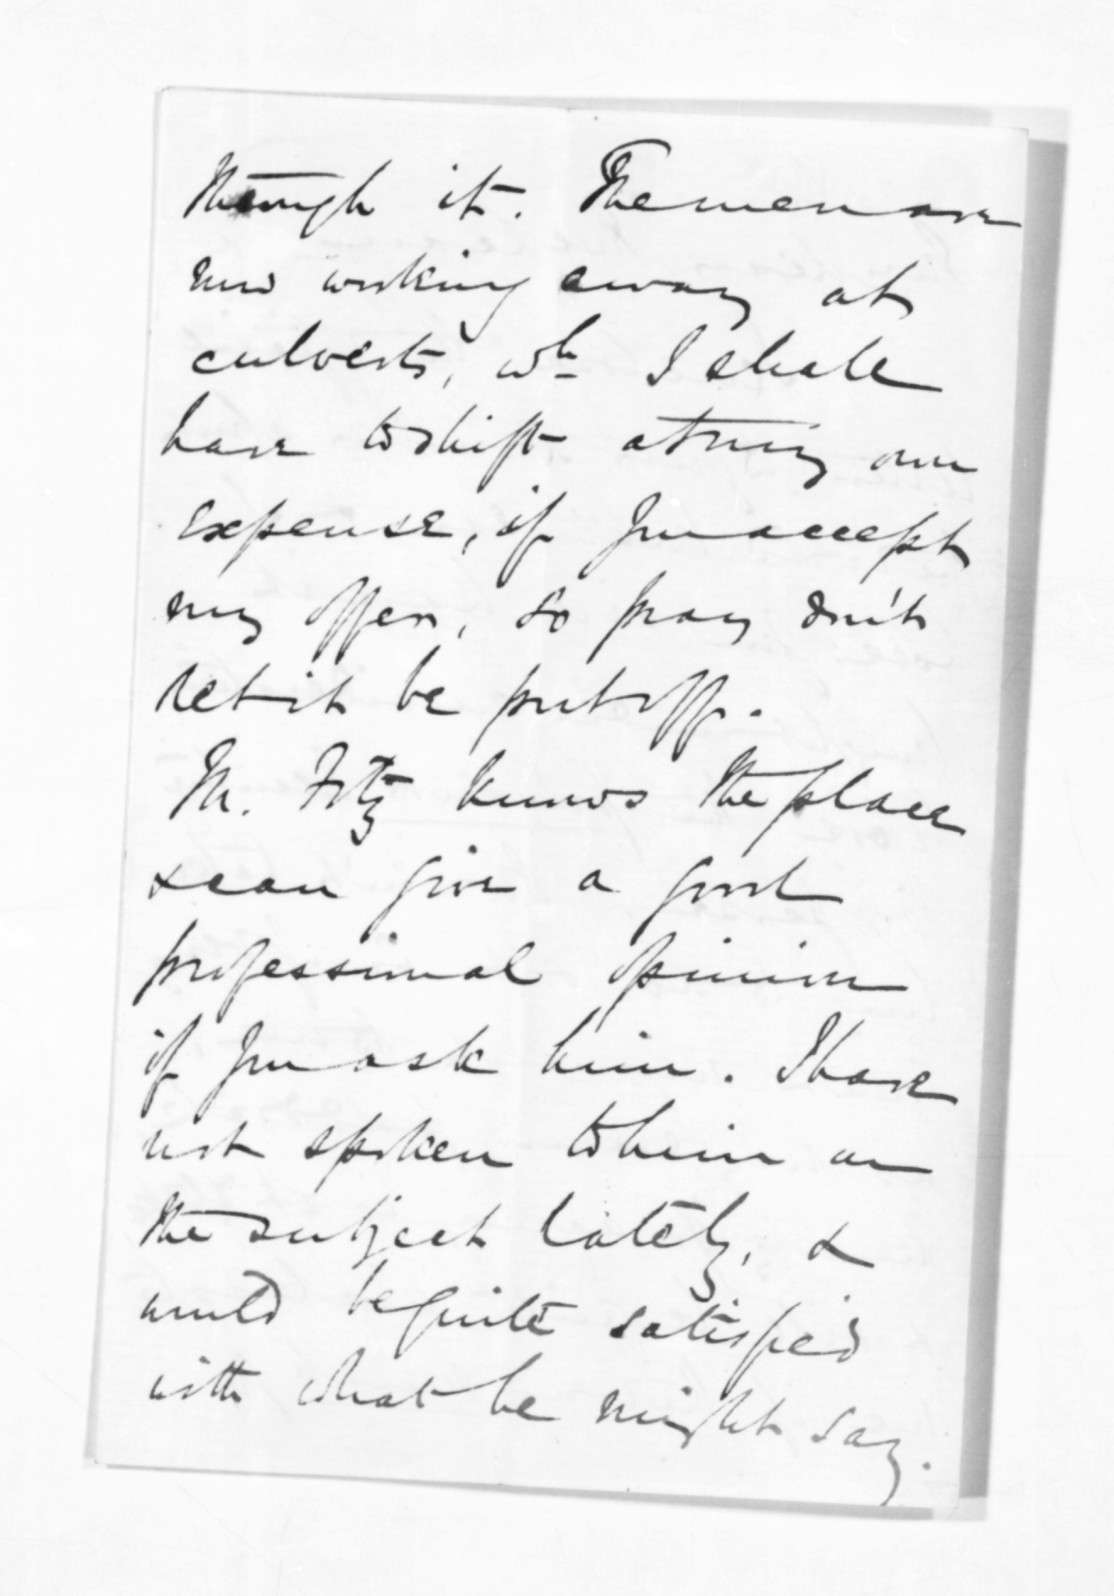 through it. The men are
now working away at
culverts, wh I shall
have to shift at my own
expense, if you accept
my offer, so pray don't
let it be put off.
Mr. Fitz knows the place
& can give a good
professional opinion
if you ask him. I have
not spoken to him on
the subject lately, &
would be quite satisfied
with what he might say.